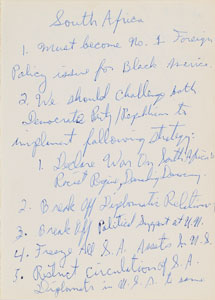 South Africa
1. Must become No. 1 Foreign
Policy issue for Black America.
2. We should challenge both
Democratic Party/Republican to
implement following strategy:
1. Declare War On South Africa's
Racist Regime,
2. Break Off Diplomatic Relation
3. Break Off Political Support at U.N.
4. Freeze All S.A. Assets In U.S.
5. Restrict circulation of S.A.
Diplomats in U.S.A. to same